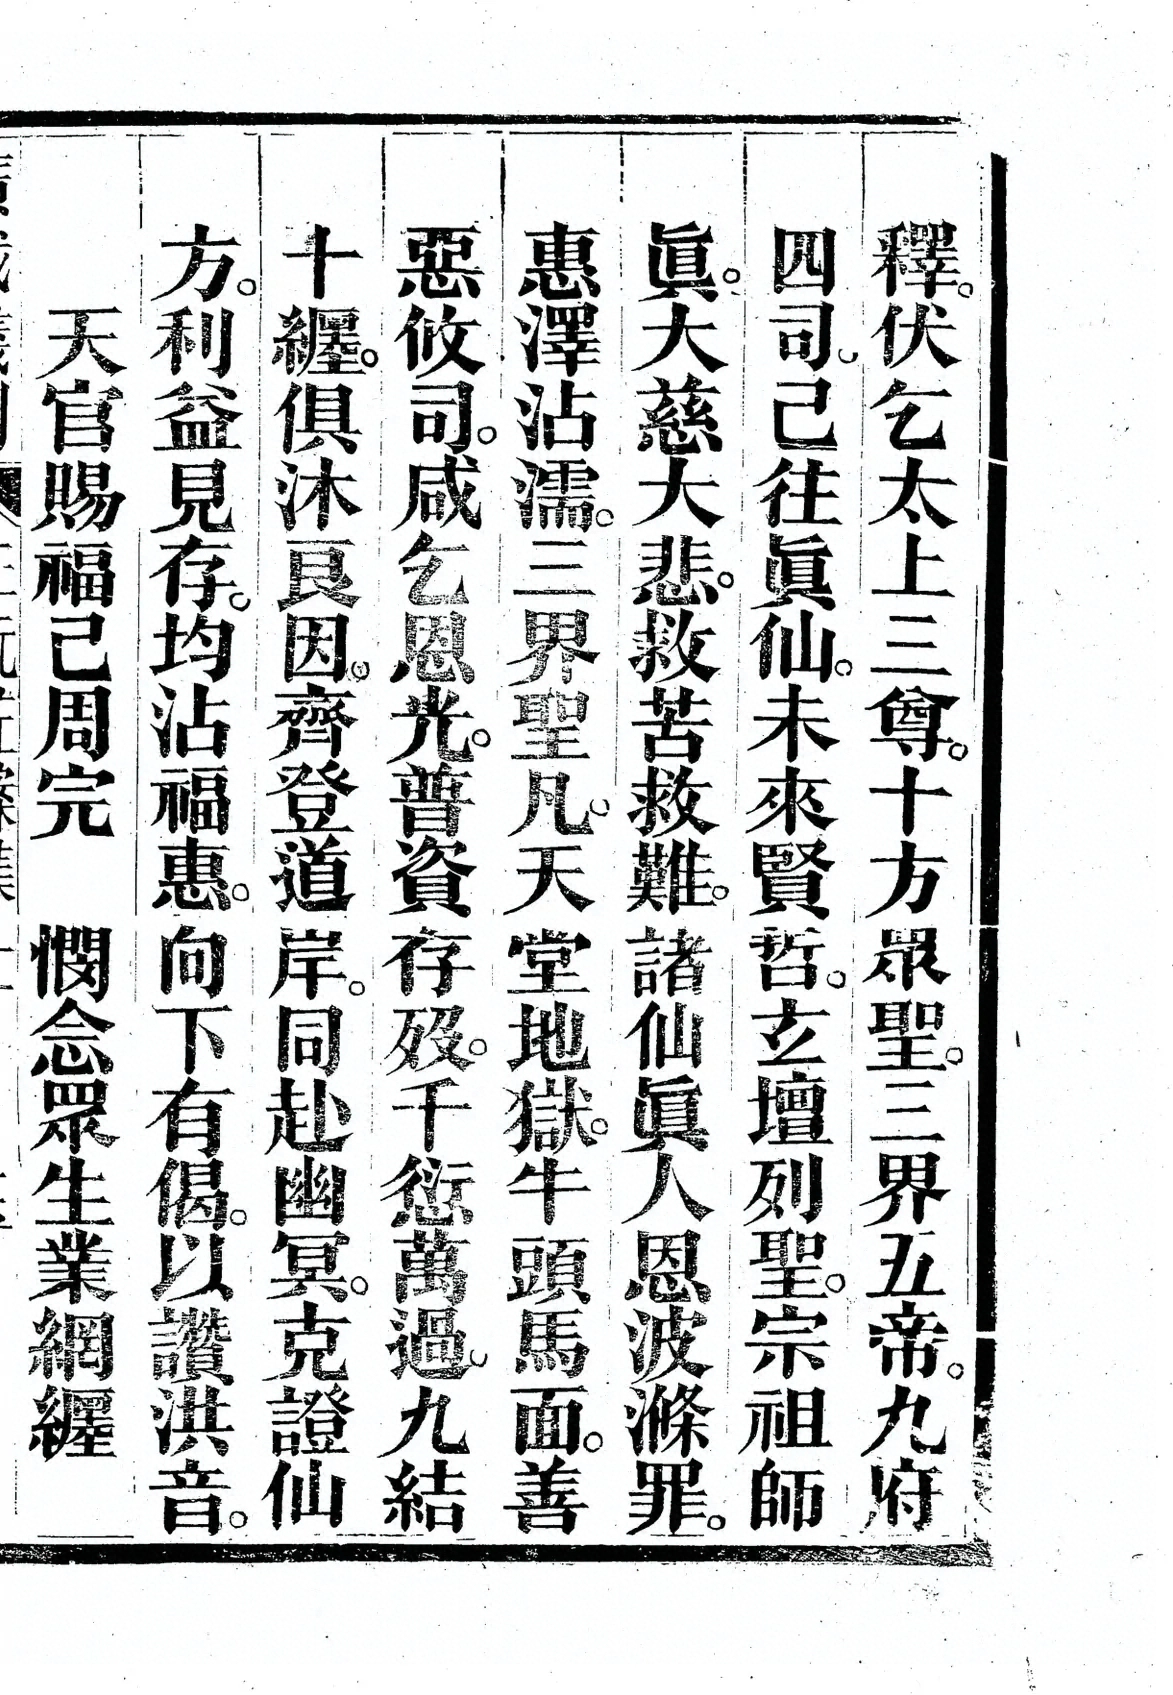 釋。伏乞太上三尊。十方眾聖。三界五帝。九府
四司。己往眞仙。未來賢哲。玄壇列聖。宗祖師
眞。大慈大悲。救苦救難。諸仙眞人恩波滌罪。
惠澤沾濡。三界聖凡。天堂地獄。牛頭馬面。善
惡攸司。咸乞恩光。普資存歿。千愆萬過。九結
十纒。俱沐良因。齊登道岸。同赴幽冥。克證仙
方。利益見存。均沾福惠。向下有偈。以讚洪音。
天官賜福己周完　憫念眾生業網纒